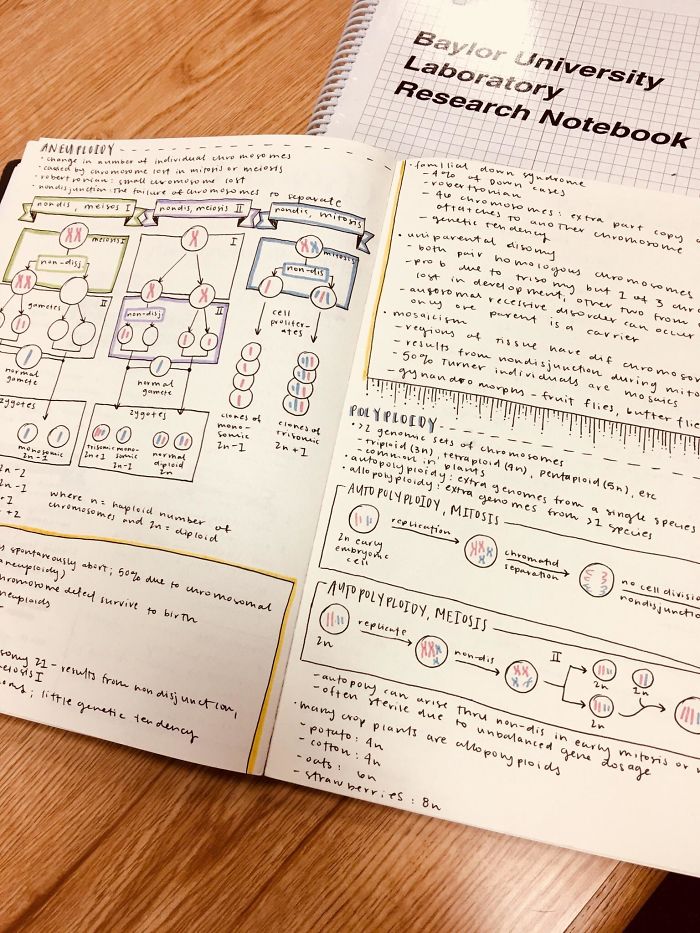 Baylor University
Laboratory
Research Notebook
ANEUPLOIDY
· change in number of individual chromosomes
· caused by chromosome lost in mitosis or meiosis
· robertsonian: small chromosome lost
· nondisjunction: the failure of chromosomes to separate
nondis, meiosis I
nondis, meiosis II
nondis, mitosis
meiosis I
I
mitosis
non-disj
non-dis
gametes
II
non-disj
cell
prolifer-
ates
normal
gamete
normal
gamete
zygotes
zygotes
monosomic
2n-1
trisomic
2n+1
mono-
somic
2n-1
normal
diploid
2n
clones of
mono-
somic
2n-1
clones of
trisomic
2n+1
2n-2
2n-1
-1
+2
where n = haploid number of
chromosomes and 2n = diploid
spontaneously abort; 50% due to chromosomal
aneuploidy)
chromosome defect survive to birth
aneuploids
21 - results from nondisjunction,
meiosis I
; little genetic tendency
· familial down syndrome
- 4% of Down cases
- robertsonian
- 46 chromosomes: extra part copy
attaches to another chromosome
- genetic tendency
· uniparental disomy
- both pair homologous chromosomes
- prob due to trisomy but 1 of 3
lost in development, other two from
- autosomal recessive disorder can occur
only one parent is a carrier
· mosaicism
- regions of tissue have dif
- results from nondisjunction during
- 50% Turner individuals are mosaics
- gynandromorphs - fruit flies, butterflies
POLYPLOIDY
· >2 genomic sets of chromosomes
- triploid (3n), tetraploid (4n), pentaploid (5n), etc
- common in plants
· autopolyploidy: extra genomes from a single species
· allopolyploidy: extra genomes from >1 species
AUTOPOLYPLOIDY, MITOSIS
replication
chromatid
separation
2n early
embryonic
cell
no cell division
nondisjunction
AUTOPOLYPLOIDY, MEIOSIS
2n
replicate
non-dis
II
2n
2n
2n
- autopoly can arise thru non-dis in early mitosis or
- often sterile due to unbalanced gene dosage
· many crop plants are allopolyploids
- potato: 4n
- cotton: 4n
- oats: 6n
- strawberries: 8n